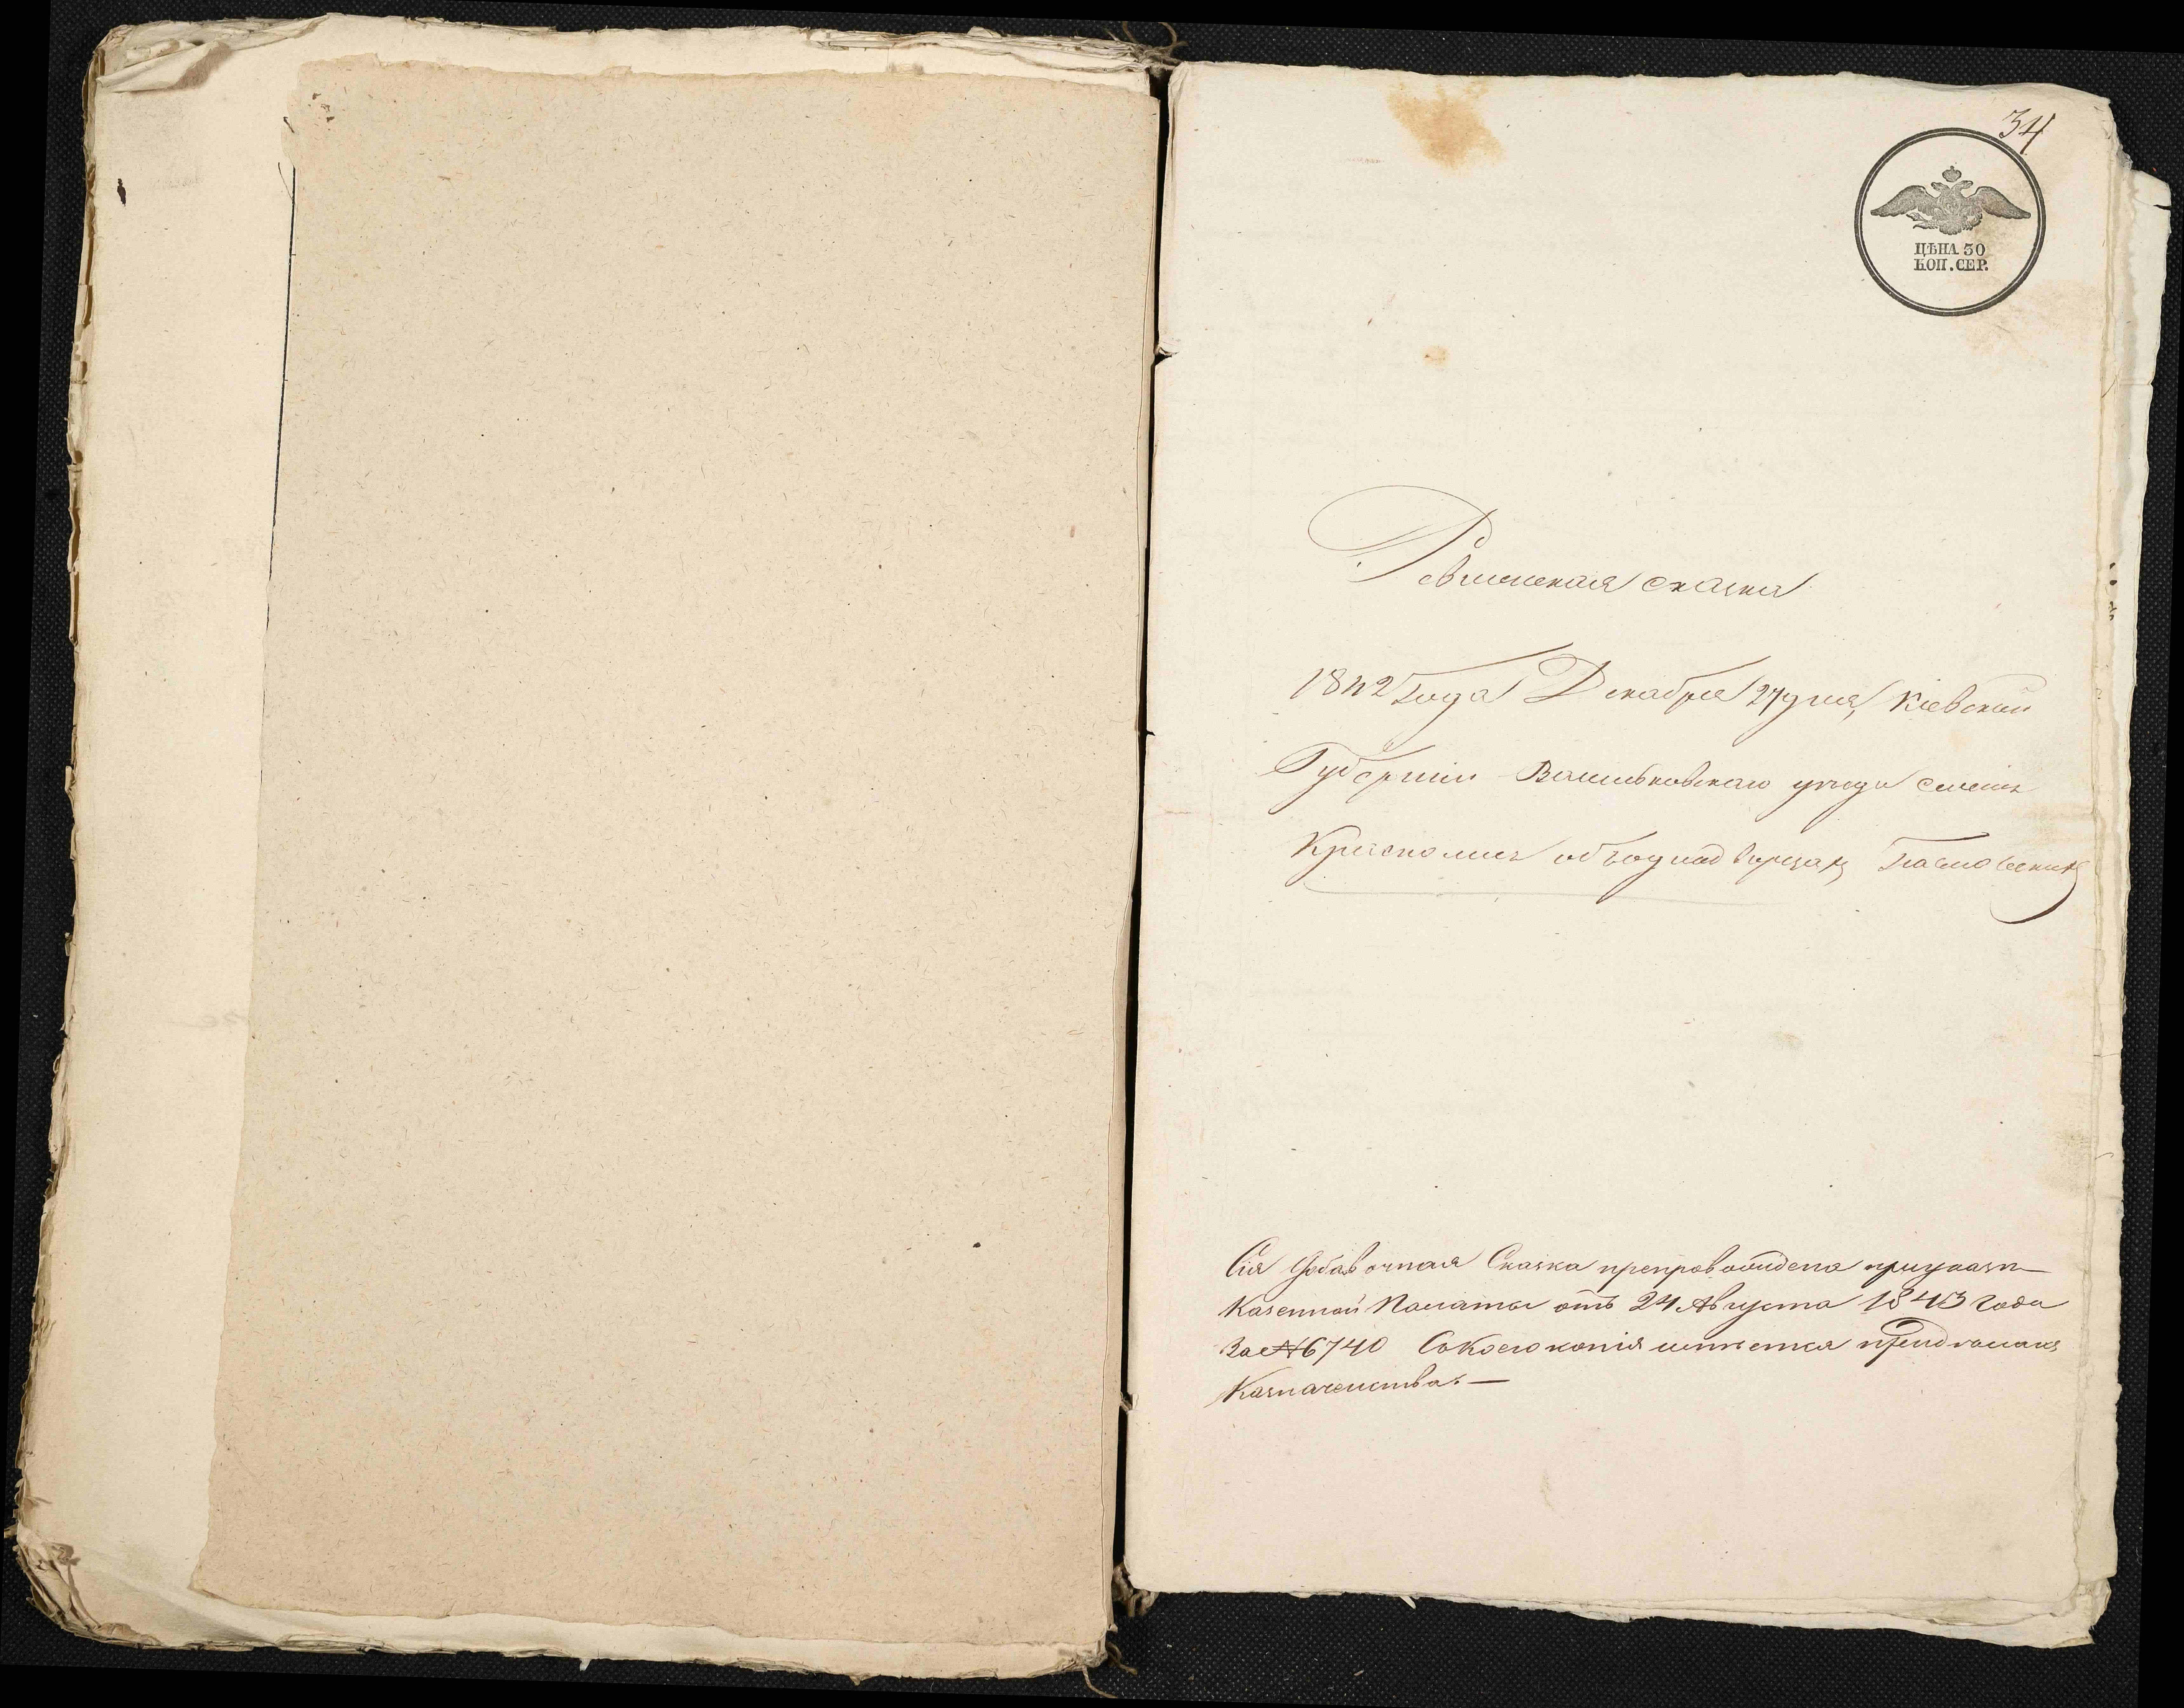 34
ЦѢНА 30
КОП. СЕР.
Ревижская сказка
1842 года Декабря 27 дня, Кіевской
Губерніи Васильковскаго уѣзда селенія
объ однодворцахъ
Сія добавочная Сказка препровождена при указѣ
Казенной Палаты отъ 24 Августа 1843 года
За № 6740 Съ коего копія имѣется при дѣлахъ
Казначейства. —